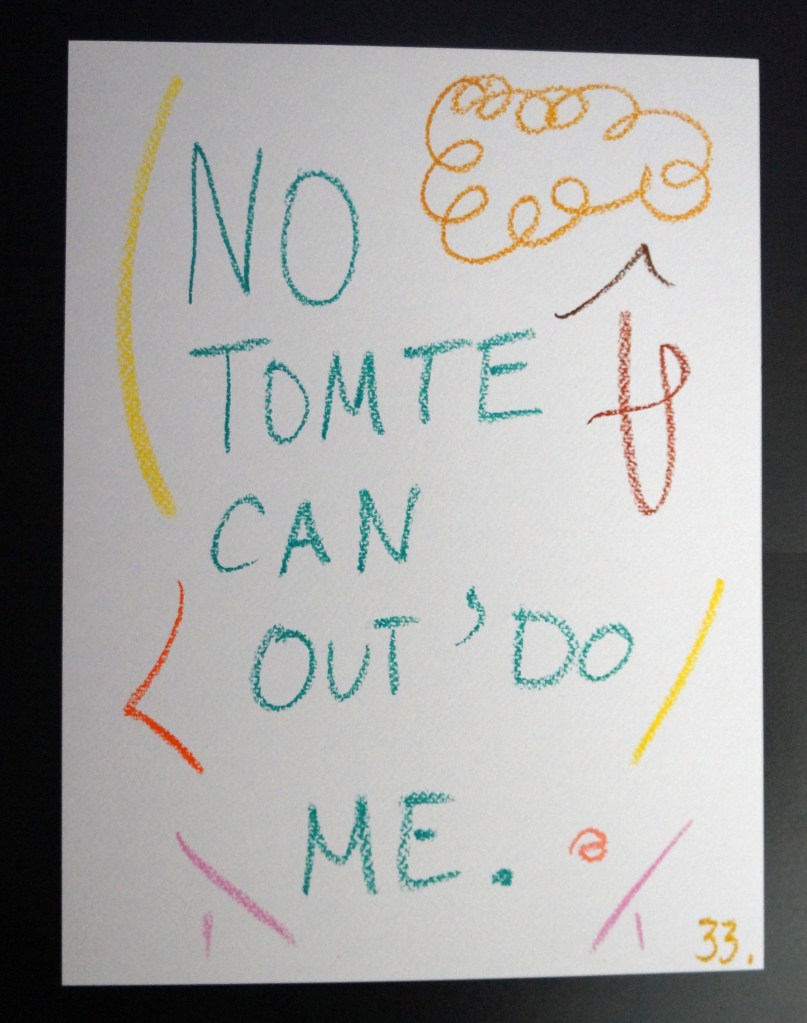 NO
TOMTE
CAN
OUT'DO
ME.
33.